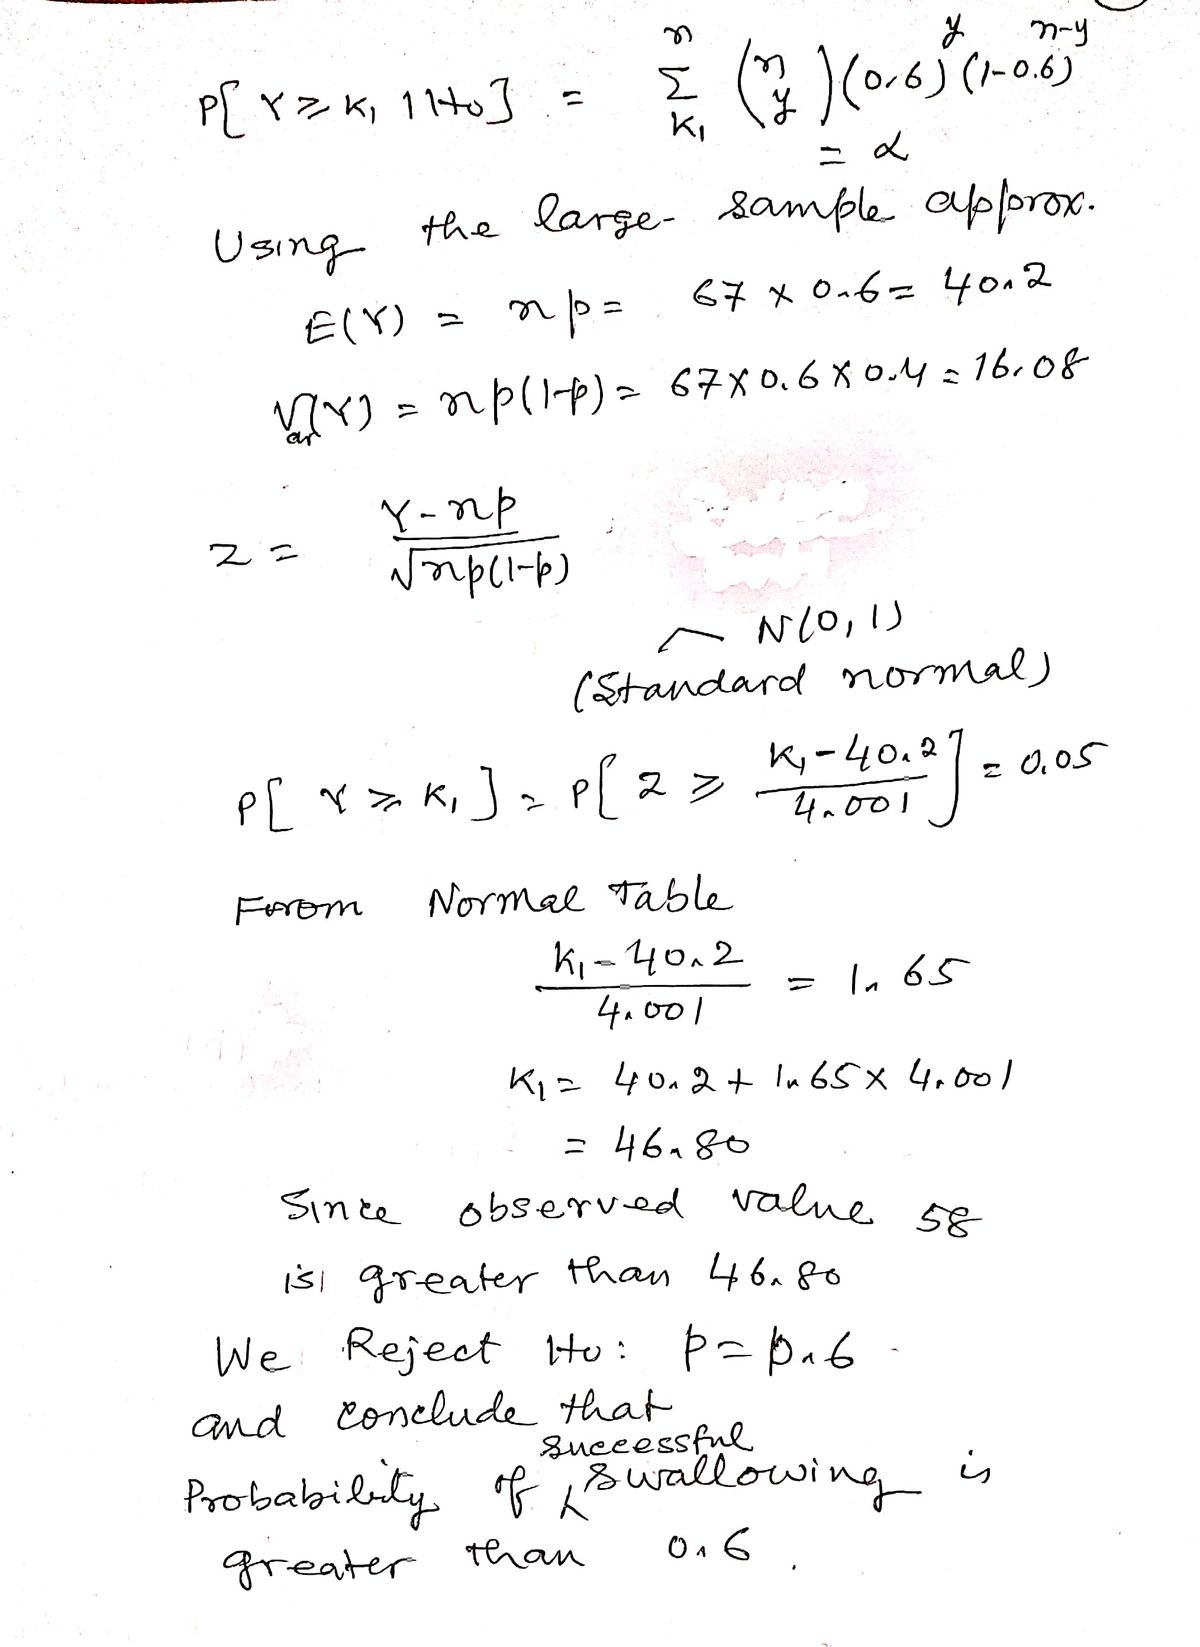 P[ Y ≥ K₁ | H₀ ] = Σ_{K₁}^{n} (n y) (0.6)^y (1-0.6)^{n-y}
= α
Using the large- sample approx.
E(Y) = np = 67 × 0.6 = 40.2
Var(Y) = np(1-p) = 67 × 0.6 × 0.4 = 16.08
Z = (Y - np) / √np(1-p)
~ N(0, 1)
(Standard normal)
P[ Y ≥ K₁ ] = P[ Z ≥ (K₁ - 40.2) / 4.001 ] = 0.05
From Normal Table
(K₁ - 40.2) / 4.001 = 1.65
K₁ = 40.2 + 1.65 × 4.001
= 46.80
Since observed value 58
is greater than 46.80
We Reject H₀: p = 0.6
and conclude that
Probability of successful swallowing is
greater than 0.6.